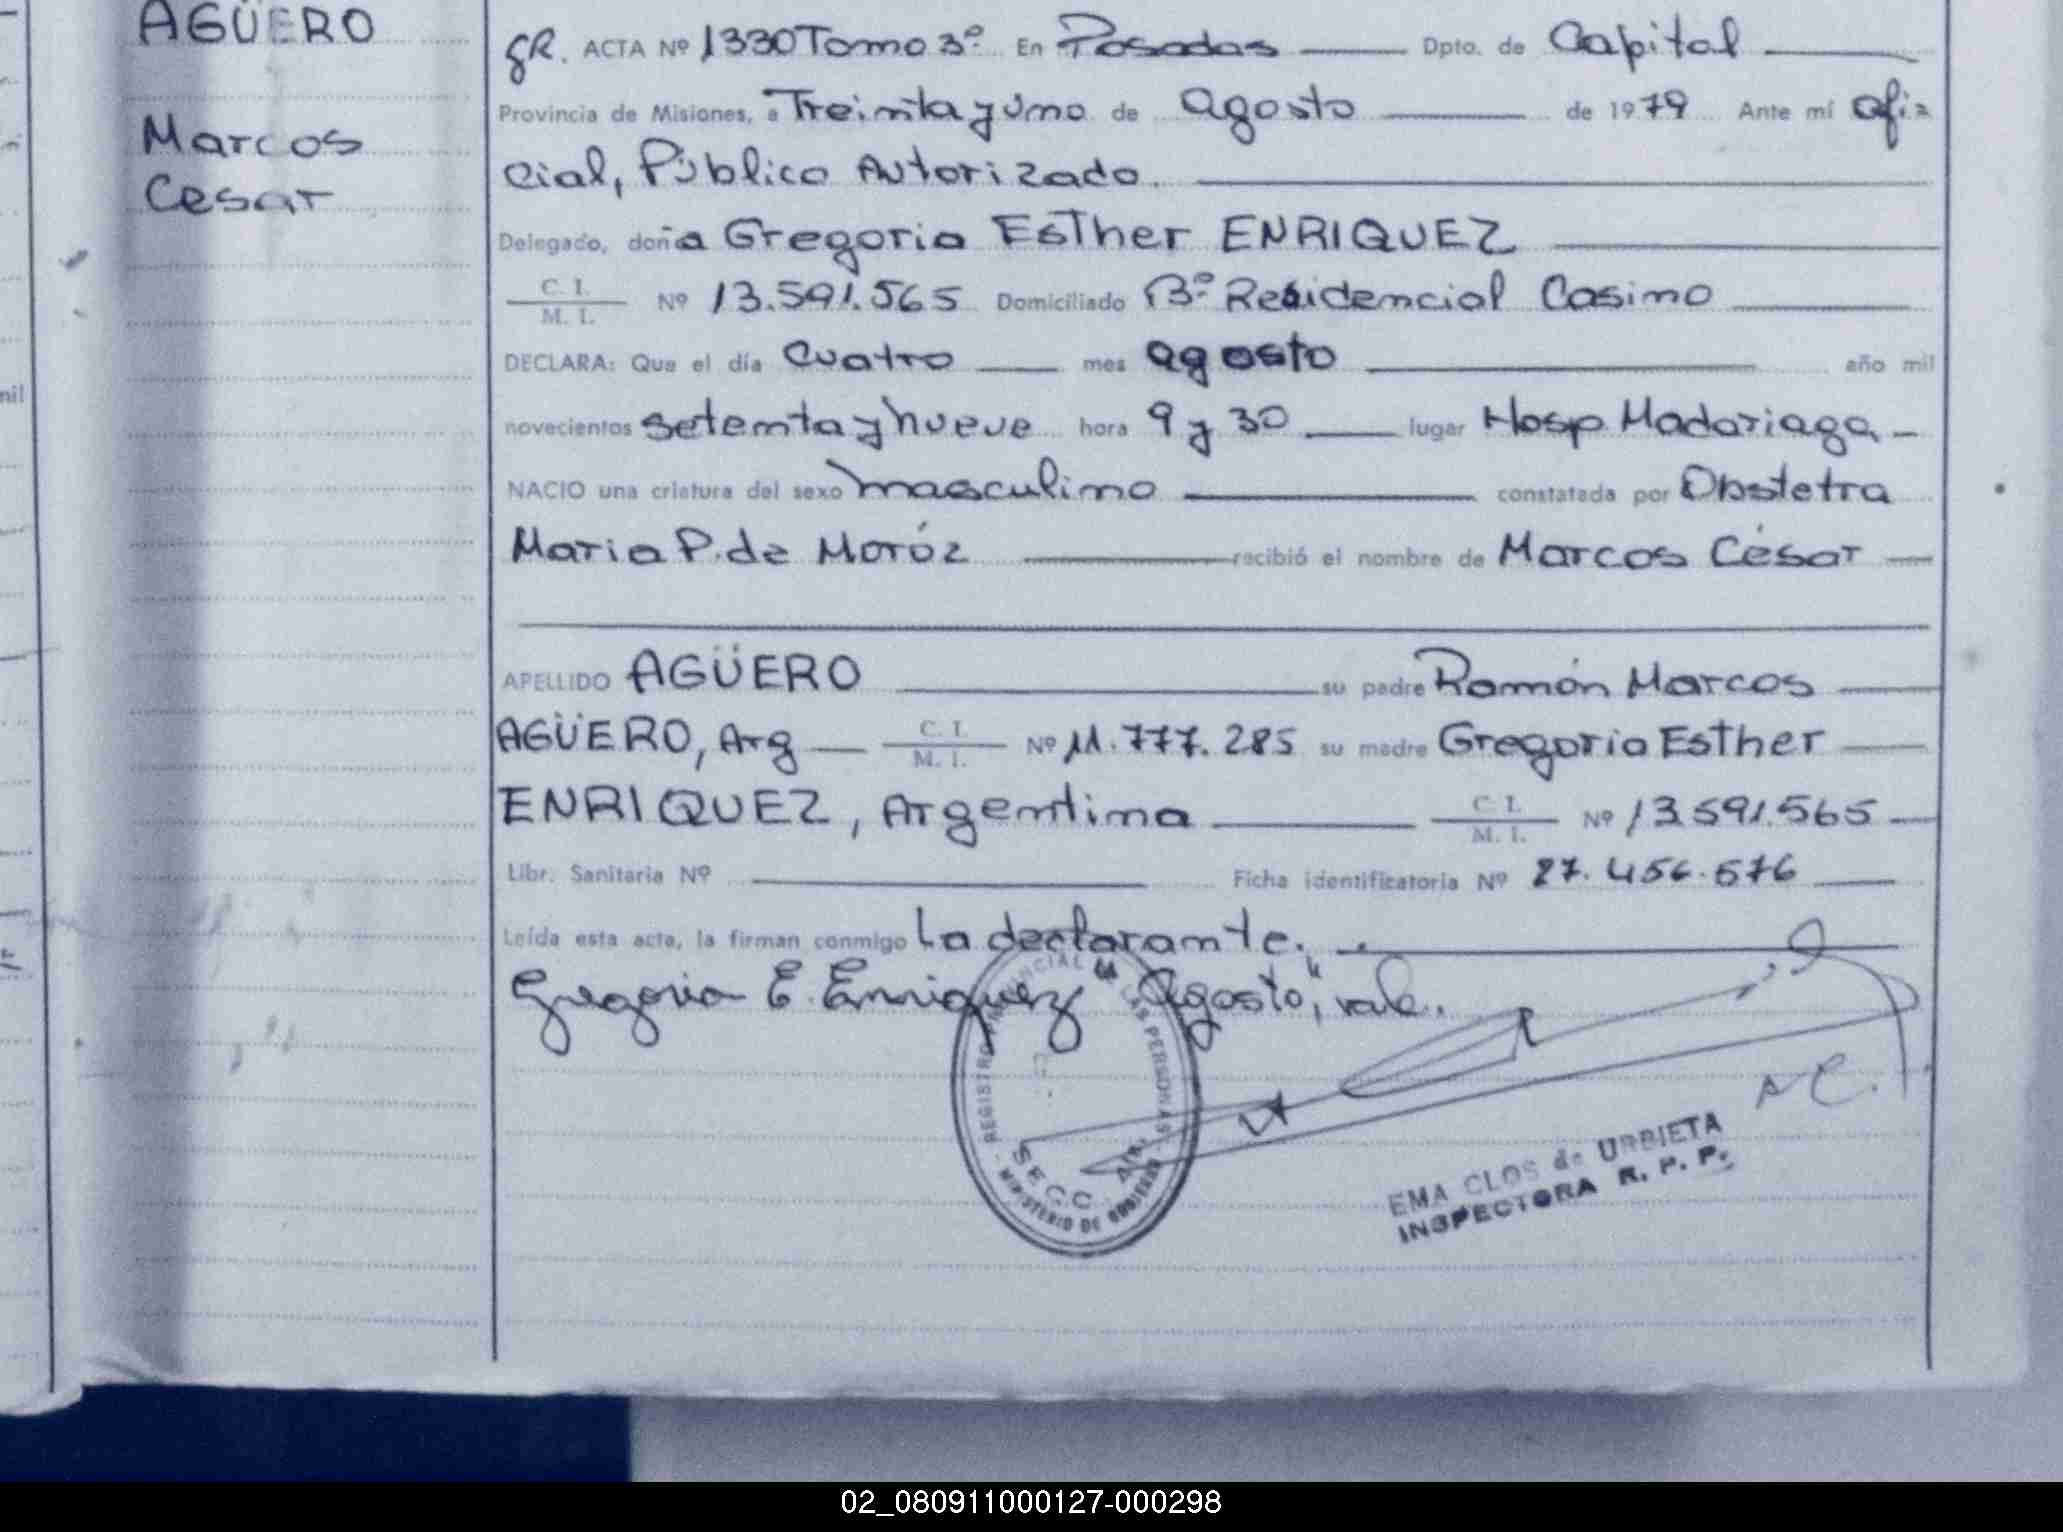 AGÜERO
Marcos
Cesar
GR. ACTA Nº 1330 Tomo 3º En Posadas Dpto. de Capital
Provincia de Misiones, a Treinta y uno de agosto de 1979 Ante mí ofi=
cial, Público Autorizado
Delegado, doña Gregoria Esther ENRIQUEZ
C. I.
M. I. Nº 13.591.565 Domiciliado Bº Residencial Casino
DECLARA: Que el día cuatro mes agosto año mil
novecientos setenta y nueve hora 9 y 30 lugar Hosp Madariaga, -
NACIO una criatura del sexo masculino constatada por Obstetra
Maria P. de Moróz recibió el nombre de Marcos César
APELLIDO AGÜERO su padre Ramón Marcos
AGÜERO, Arg C. I. M. I. Nº 11.777.285 su madre Gregoria Esther
ENRIQUEZ, Argentina C. I. M. I. Nº 13.591.565
Libr. Sanitaria Nº Ficha identificatoria Nº 27.456.576
Leída esta acta, la firman conmigo La declarante.
Gregoria E. Enriquez "Agosto", vale.
REGISTRO PROVINCIAL DE LAS PERSONAS
SECC.
MINISTERIO DE GOBIERNO
EMA CLOS de URBIETA
INSPECTORA R. P. P.
02_080911000127-000298